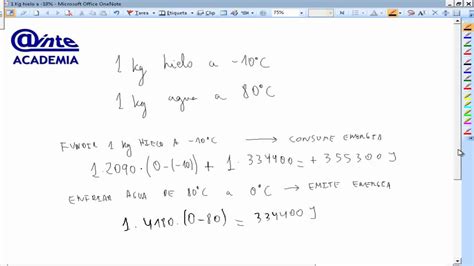 1 Kg hielo a -10% - Microsoft Office OneNote
75%
@inte
ACADEMIA
1 kg hielo a -10°C
1 kg agua a 80°C
FUNDIR 1 kg HIELO A -10°C → CONSUME ENERGIA
1.2090.(0-(-10)) + 1.334400 = +355300 J
ENFRIAR AGUA DE 80°C a 0°C → EMITE ENERGIA
1.4180.(0-80) = 334400 J